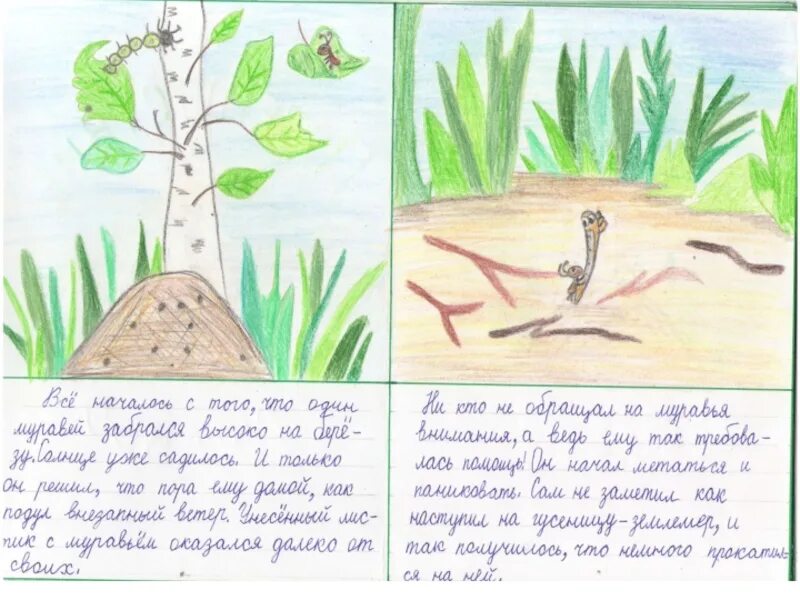 Всё началось с того, что один
муравей забрался высоко на берё-
зу. Солнце уже садилось. И только
он решил, что пора ему домой, как
подул внезапный ветер. Унесённый лис-
тик с муравьём оказался далеко от
своих.
Ни кто не обращал на муравья
внимания, а ведь ему так требова-
лась помощь! Он начал метаться и
паниковать. Сам не заметил как
наступил на гусеницу-землемер, и
так получилось, что немного прокатил-
ся на ней.